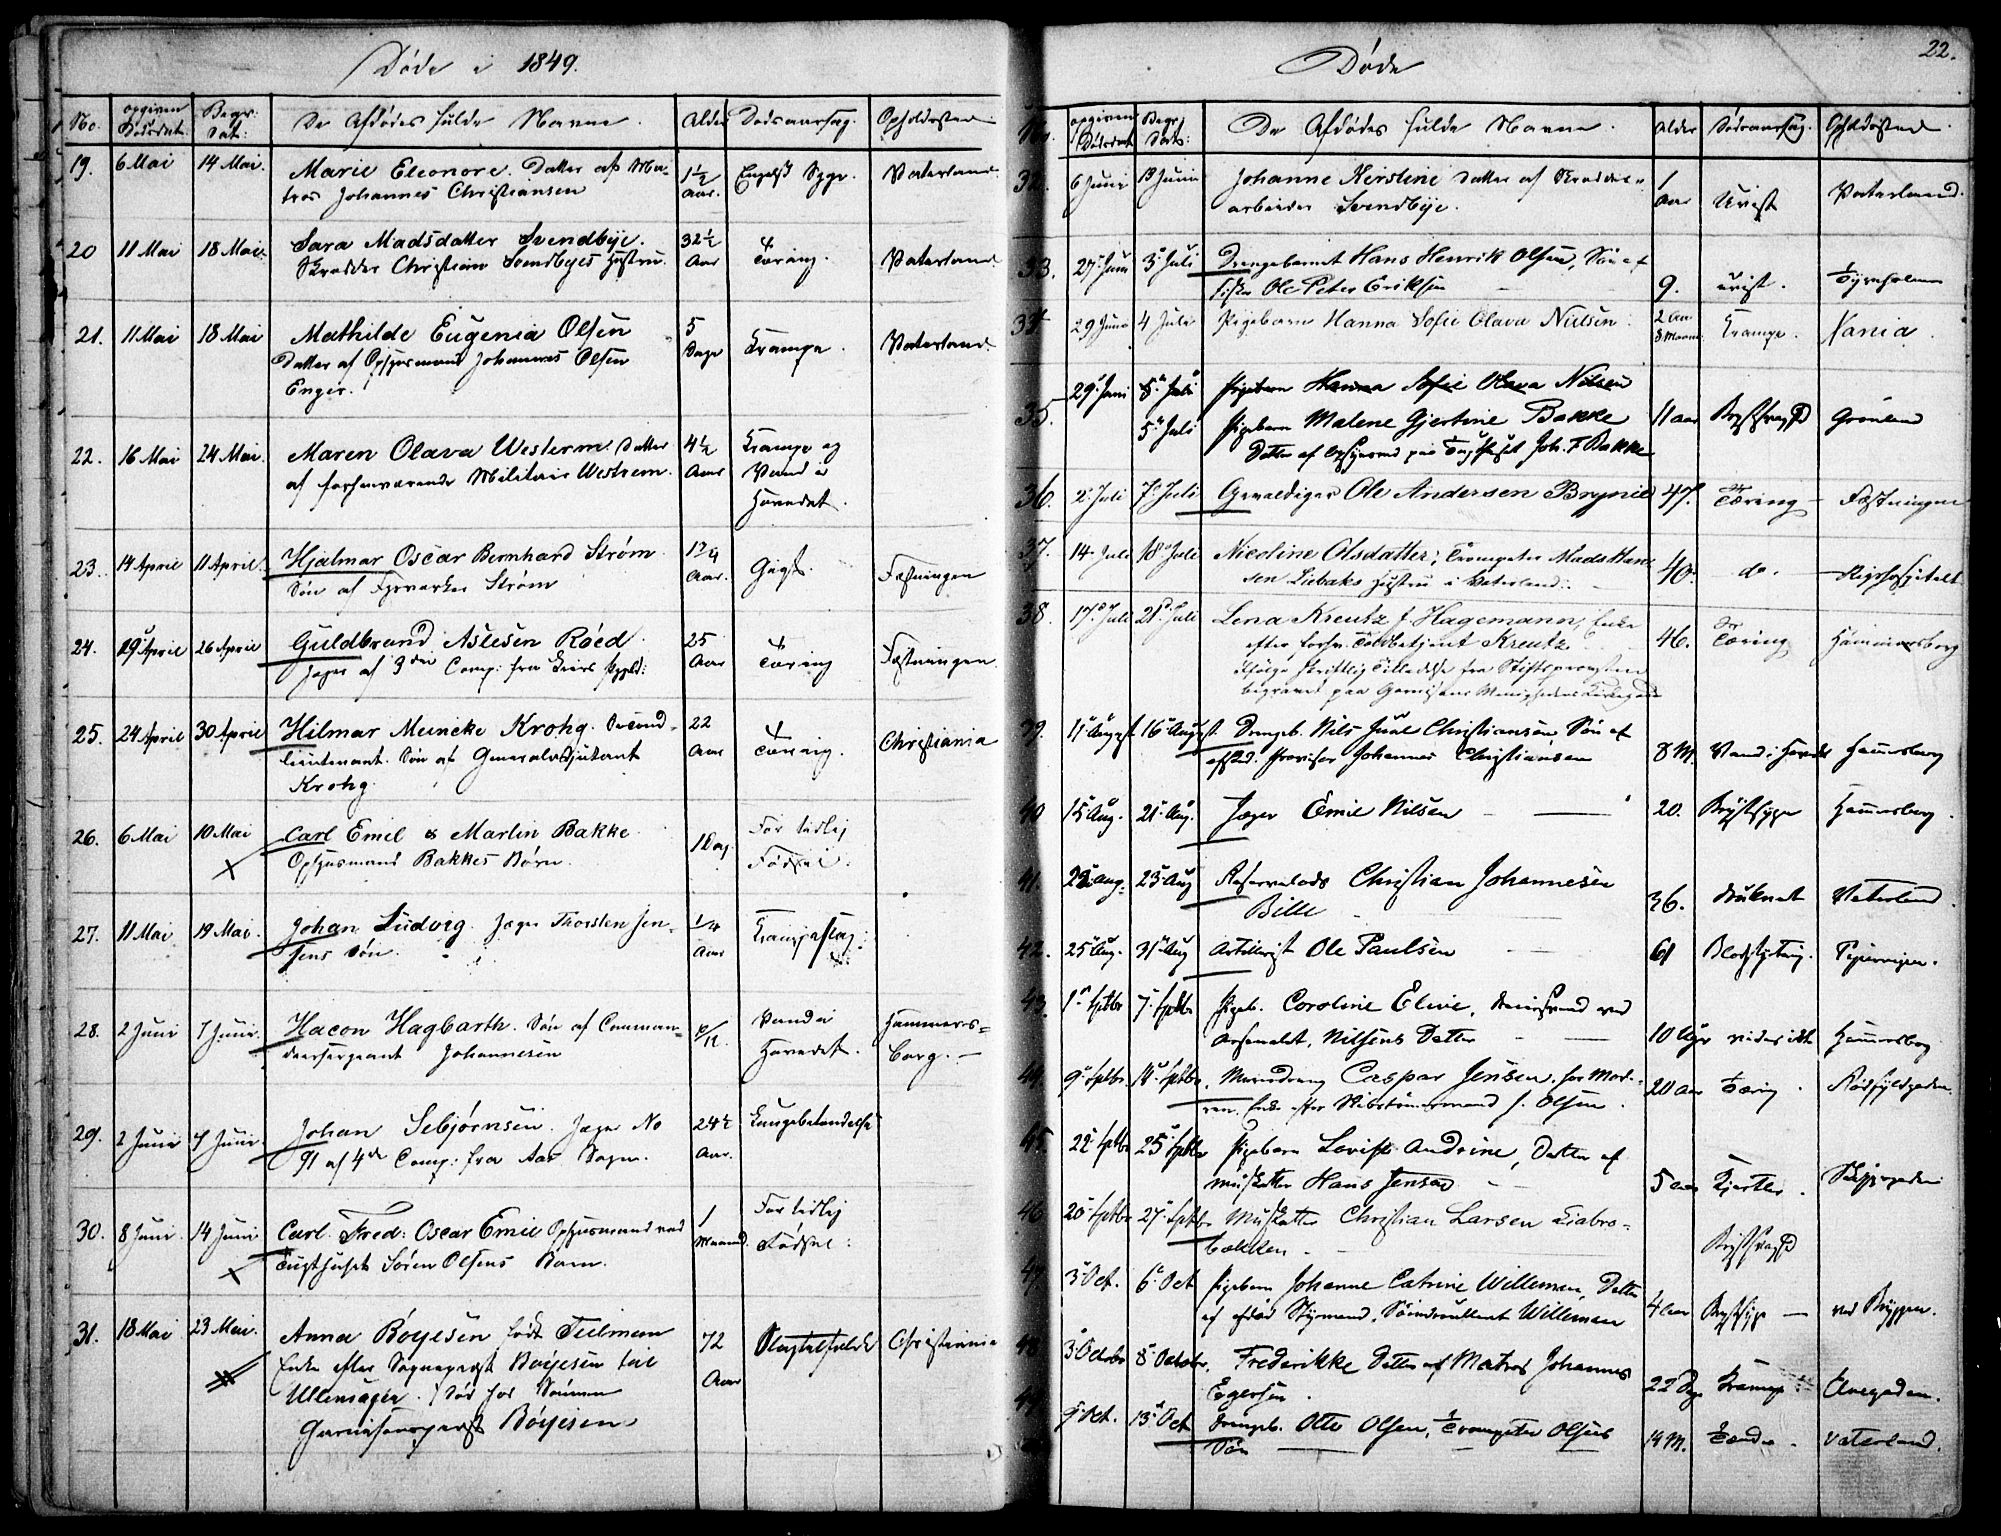 Døde i 1849.
No. opgiven Dødsdat. Begr: Dat: De Afdødes fulde Navne. Alder Dødsaarsag. Opholdssted
19. 6 Mai 14 Mai. Marie Eleonore. Datter af Ma-
tros Johannes Christiansen 1½ Aar. Engelsk Syge. Vaterland.
20 11 Mai 18 Mai. Sara Madsdatter Svendbye.
Skrædder Christian Svendbyes Hustru. 32½ Aar Tæring. Vaterland.
21. 11 Mai 18 Mai Mathilde Eugenia Olsen
Datter af Opsynsmand Johannes Olsen
Enger. 5 Dage Krampe. Vaterland.
22. 16 Mai 24 Mai. Maren Olava Westerm. Datter
af forhenværende Militair Westrem. 4½ Aar Krampe og
Vand i
Hovedet.
23. 14 April 11 April. Hjalmar Oscar Bernhard Strøm
Søn af Fyrværker Strøm Aar. Gigt. Fæstningen
24. 19 April 26 April Guldbrand Aslesen Röed
Jæger af 3die Comp: fra 25 Aar Tæring Fæstningen
25. 24 April 30 April Hilmar Meincke Krohg. Second-
lieutenant. Søn af Generaladjutant
Krohg. 22 Aar Tæring. Christiania
26. 6 Mai 10 Mai Carl Emil & Martin Bakke
Opsynsmand Bakkes Børn. 1 Dag For tidlig
Fødsel.
27. 11 Mai 19 Mai. Johan Ludvig. Jæger Thorsten Jen-
sens Søn. ¼ Aar Krampeslag.
28. 2 Juni 7 Juni. Hacon Hagbarth. Søn af Comman-
deersergeant Johannesen Vand i
Hovedet. Hammers-
borg.
29. 2 Juni 7 Juni. Johan Sebjørnsen. Jæger No
91 af 4de Comp: fra Aas Sogn. 24½ Aar. Lungebetændelse
30. 8 Juni 14 Juni Carl. Fred: Oscar Emil Opsynsmand ved
Tugthuset Sören Olsens Barn. 1 Maaned. For tidlig
Fødsel:
31. 18 Mai 23 Mai. Anna Böyesen født Teilman
Enke efter Sogneprest Böyesen til
Ullensager. Död hos Sönnen
Garnisonsprest Böyesen. 72 Aar Slagtilfælde Christiania
22.
Døde
No. opgiven Dødsdat Begr. Dat: De Afdødes fulde Navne. Alder Dødsaarsag. Opholdssted.
32. 6 Juni 13 Juni Johanne Kerstine Datter af Skrædder-
arbeider Svendbye. 1 Aar Uvist Vaterland.
33. 27 Juni 3 Juli Drengebarnet Hans Henrik Olsen, Søn af
Fisker Ole Peter Eriksen 9. uvist. Tyveholmen
34 29 Juni 4 Juli Pigebarn Hanna Sofie Olava Nielsen. 2 Aar 3 Maan. Krampe.
29 Juni 5 Juli Pigebarn Hanna Sofie Olava Nilsen
35. 5 Juli Pigebarn Malene Gjertine Bakke
Datter af Opsynsmd paa Tugthuset Joh. F Bakke 11 aar Brystsvagh Grönland
36. 2 Juli 7 Juli Gevaldiger Ole Andersen Brynie 47. Tæring Fæstningen
37. 14 Juli 18 Juli Nicoline Olsdatter; Trompeter Mads Han-
sen Liebaks Hustru i Vaterland. 40. do. Rigshospitalet
38. 17 Juli 21 Juli Lena Kreutz f. Hagemann, Enke
efter forhv. Toldbetjent Kreutz
ifølge skriftlig Tilladelse fra Stiftsprovsten
begravet paa Garnisons Menighedens Kirkegaard 46. Tæring Hammersborg
39. 11 August 16 August Drengb. Nils Juul Christiansen Søn af
afskd. Provisor Johannes Christiansen 8 M. Vand i Hovedet Hammersborg
40 15 Aug. 21 Aug. Jæger Emil Nilsen 20. Brystsyge Hammersborg.
41. 22 Aug. 25 Aug Reservelods Christian Johannesen
Bille 36. druknet Vaterland.
42. 25 Aug. 31 Aug Artillerist Ole Paulsen 61 Blodstyrtning. Pipervigen.
43. 1 Septbr 7 Septbr Pigeb. Caroline Elvie, ved
Arsenalet, Nilsens Datter 10 Uger vides ikke Hammersborg
44. 9 Septbr. 14 Septbr. Murerdreng Caspar Jensen. hos Mod-
ren. Enke efter Skibstömmermand J. Olsen. 20 aar Tæring.
45. 22 Septbr 25 Septbr Pigebarn Lovise Andrine, Datter af
Musketter Hans Jensen 5 aar Kjertler. Skippergaden
46 20 Septbr 27 Septbr Musketter Christian Larsen Liabro-
bakken. Brystsvagh
47. 3 Oct. 6 Oct Pigebarn Johanne Catrine Willeman, Datter
af afdød Styrmand, Willeman 4 aar Brystsyge ved Bryggen.
48 3 October 8 October. Frederikke Datter af Matros Johannes
Egersen. 22 Dge Krampe. Elvegaden.
49 9 Oct. 13 Oct Drengeb. Otto Olsen, Trompeter Olsens
Søn 14 M. Tænder. Vaterland.